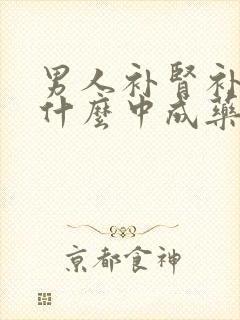 男人补肾补
什麼中成藥
京都食神